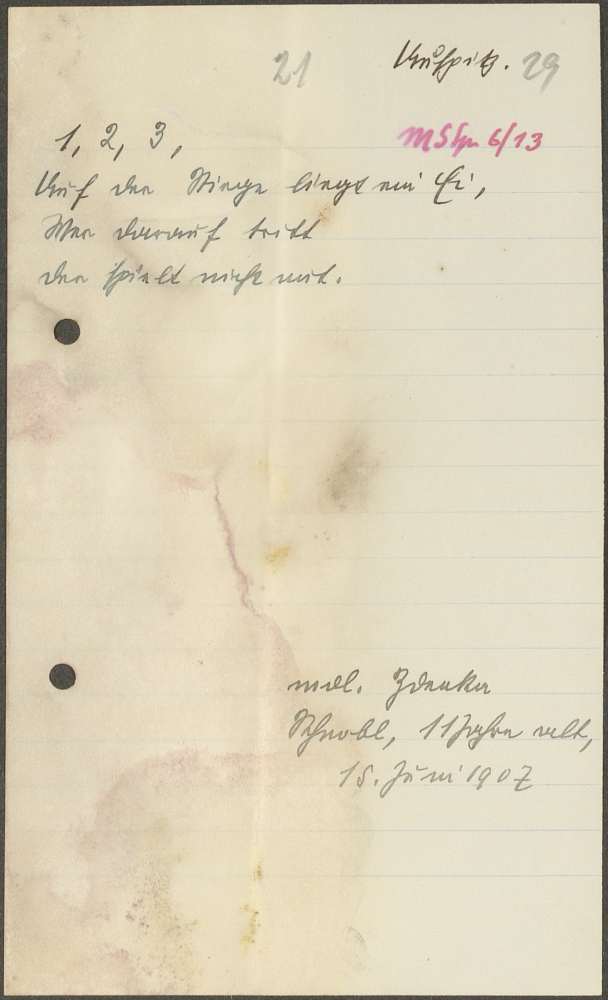 21
Auspitz. 29
6/13
1, 2, 3,
Auf der Stiege liegt ein Ei,
Wer darauf tritt
der spielt nicht mit.
mdl. Zdenka
11 Jahre alt,
15. Juni 1907